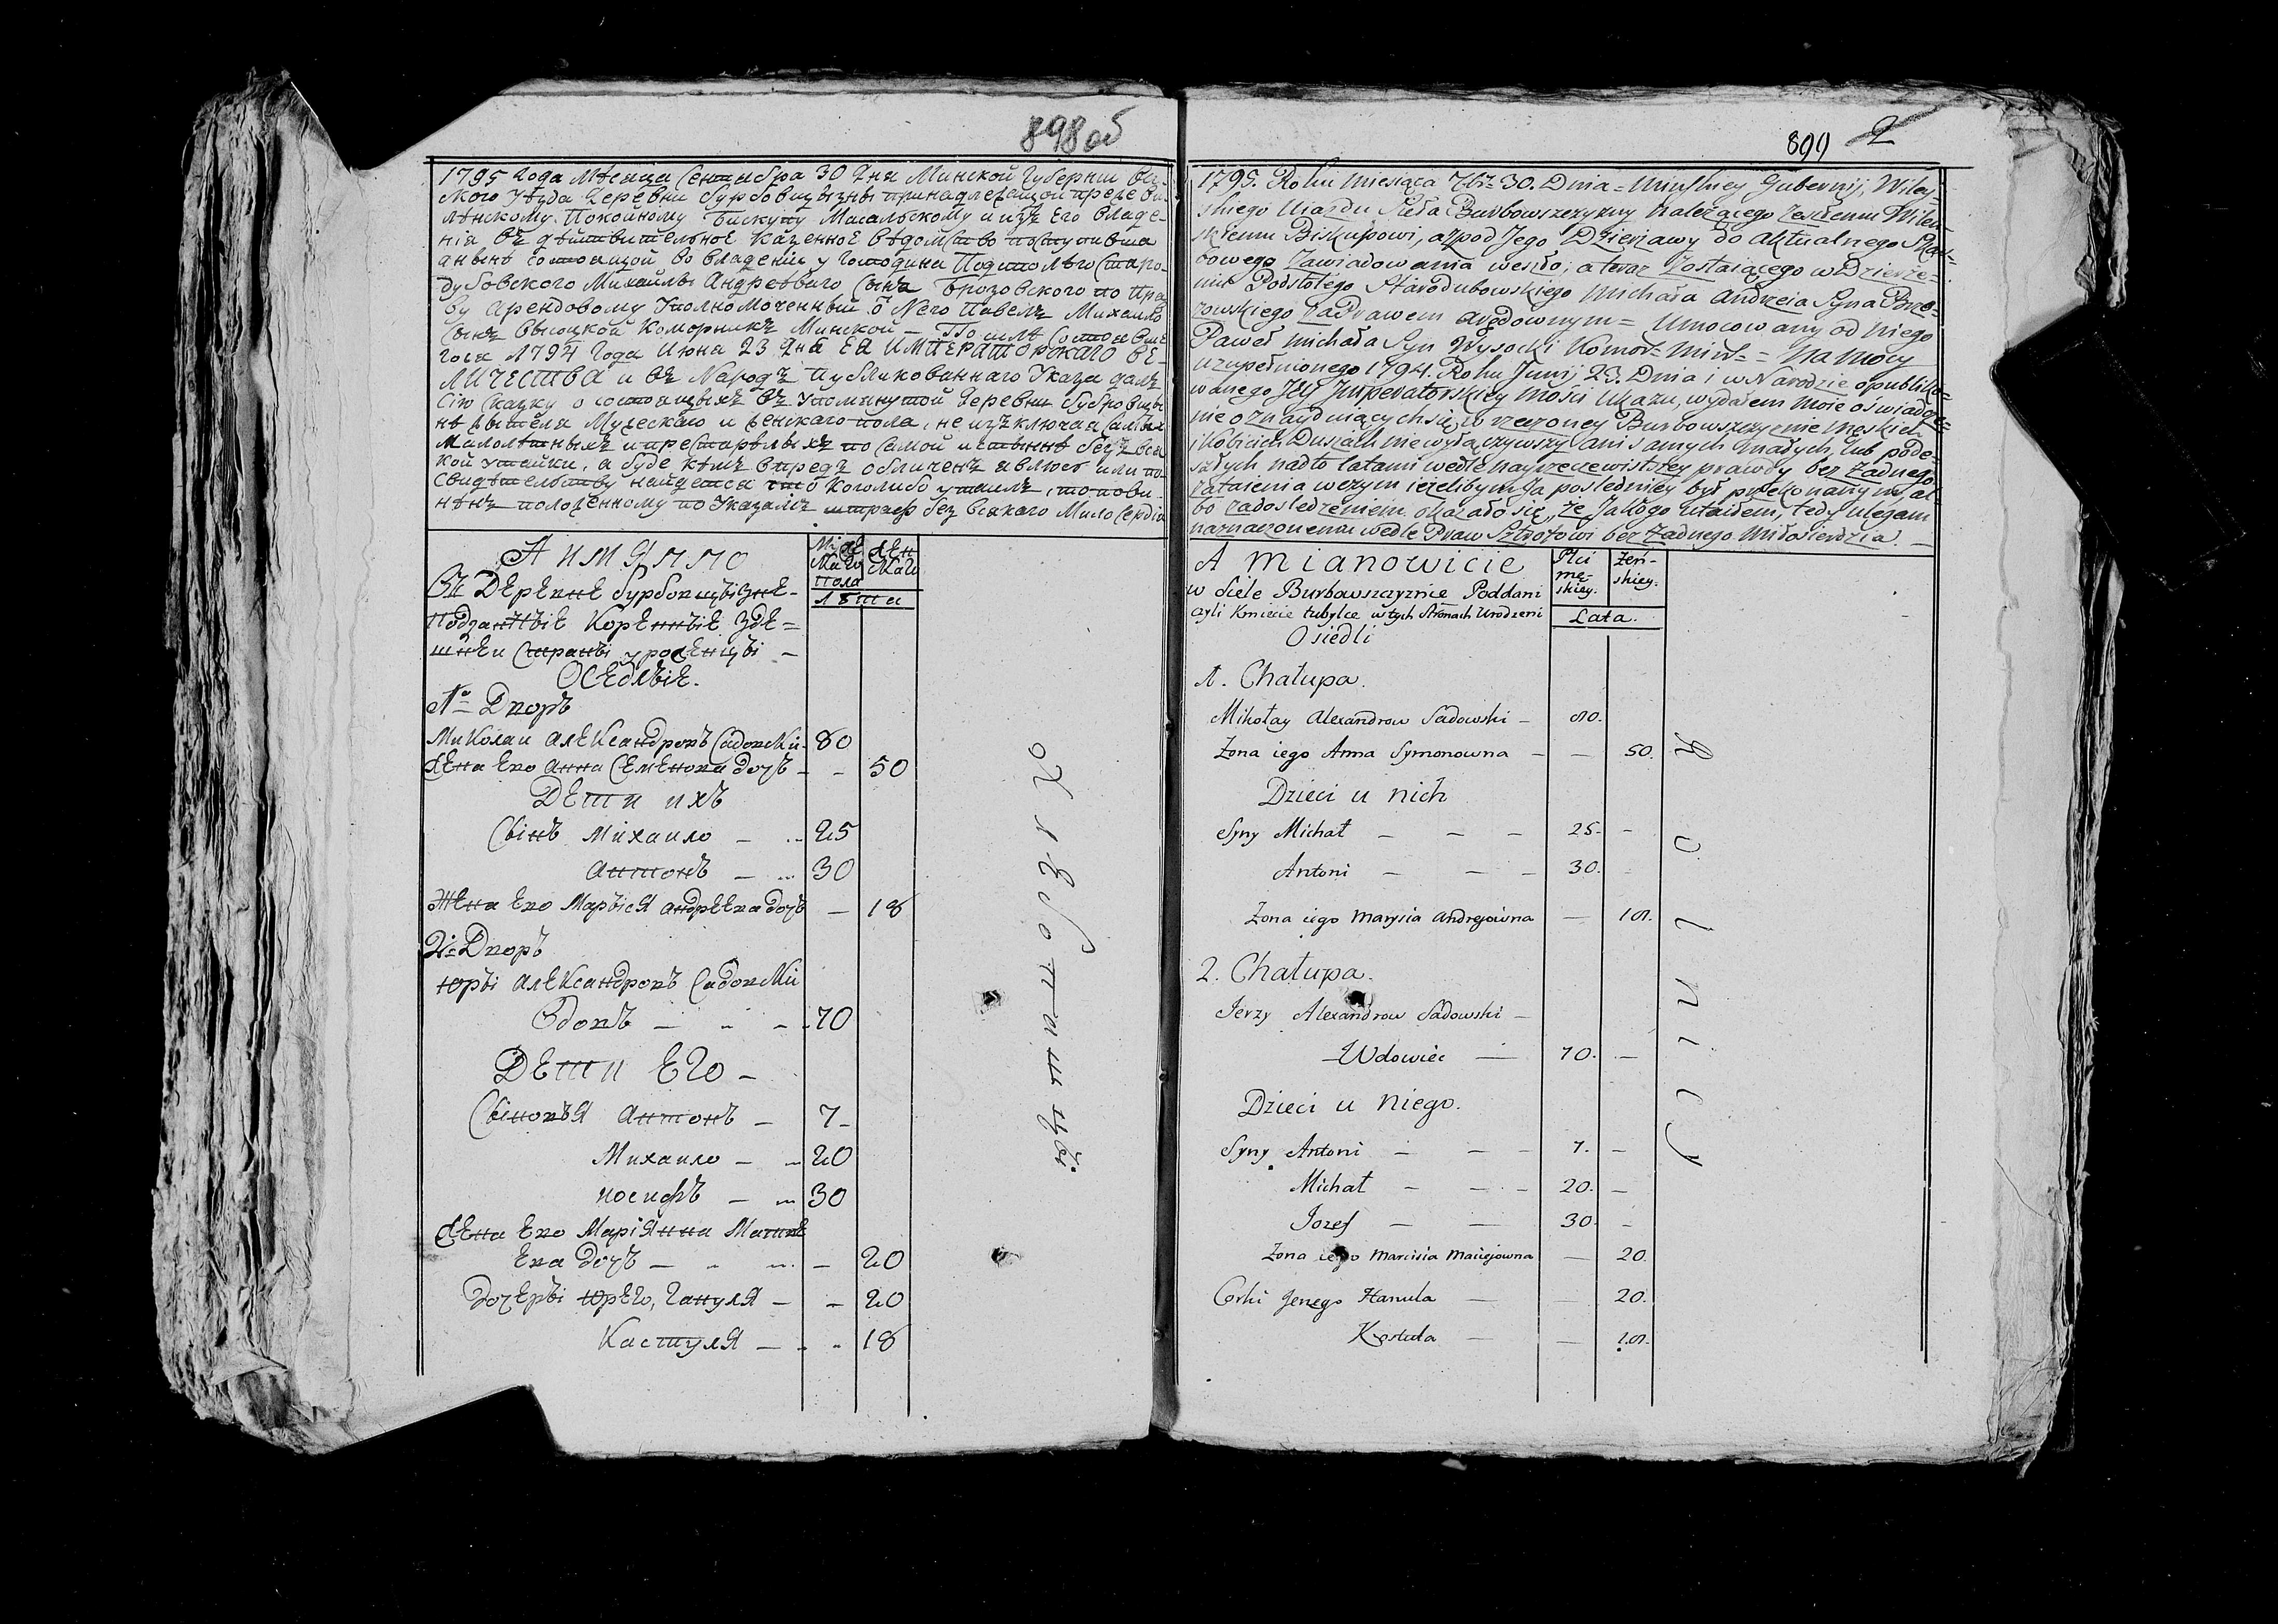 898 об
1795 Года Мѣсяца Сентября 30 Дня Минской Губернии Вилей-
ского Уѣзда Деревни Бурбовщызны принадлежащой прежде Ви-
лѣнскому Покойному Бискупу Масальскому и изъ Его Владѣ-
нія въ дѣйствительное Казенное вѣдомство поступивша
анынѣ состоящой во владеніи у Господина Подстолѣго Старо-
дубовского Михайлы Андреевого Сына Брозовского по Пра
ву Арендовому Уполномоченный о Него Павелъ Михайло
Сынъ Высоцкой Коморникъ Минской — По силѣ Состоявше
гося 1794 Года Июня 23 Дня ЕЯ ИМПЕРАТОРСКАГО ВЕ-
ЛИЧЕСТВА и въ Народъ Публикованнаго Указа далъ
Сію Сказку о состоящыхъ въ Упомянутой Деревни Бубровщы
нѣ жытеля Мужескаго и женскаго пола, не изъключая самыхъ
Малолѣтныхъ и престарѣлыхъ по самой истиннѣ безъ вся
кой утайки, а буде кѣмъ впредъ обличенъ явлюсь или по
Свидѣтельству найдется что Коголибо утаилъ, то пови
нѣнъ положенному по Указамъ штрафу без всякаго Милосердія
А имянно
Въ Деревне Бурбовщызне-
Подданные Коренные зде=
шнеи Страны уроженцы —
Оседлые.
Муже
скаго
пола
жен
скаго
лѣта
1е Дворъ
Миколаи Александровъ Садовски 80
Жена Ево Анна Семенова дочъ — - 50
Дети ихъ
Сынъ Михаило — 25
Антонъ — 30
Жена Ево Марыся Андреева дочъ — 18
2е Дворъ
Юры Александровъ Садовски
Вдовъ — 70
Дети Его —
Сыновья Антонъ — 7
Михаило — 20
Иосифъ — 30
Жена Ево Маріянна Матве
ева дочъ — — 20
Дочеры Юрего, Гануля — - 20
Кастуля — 18
899 2
1795. Roku miesiąca 7br= 30. Dnia = Minskiey Gubernij, Wiley-
skiego Uiazdu Sieła Burbowszczyzny należącego zeszłemu Wilen
skiemu Biskupowi, a zpod Jego Dzierżawy do aktualnego Skar-
bowego Zawiadowania weszło; a teraz zostaiącego w Dzierże-
niu Podstolego Starodubowskiego Michała Andrzeia Syna Brzo-
zowskiego za Prawem arędownym = Umocowany od niego
Paweł Michała Syn Wysocki Komor= Minś= = na mocy
uzupełnionego 1794. Roku Junij 23. Dnia i w Narodzie opubliko-
wanego Jey Imperatorskiey Mości Ukazu, wydałem moie oświadcze-
nie o znayduiących się w rzeczoney Burbowszczyznie męskich
i Kobicich Duszach niewyłączywszy ani samych małych, lub pode-
szłych nadto latami wedle nayrzeczewistszey prawdy bez żadnego
zataienia w czym ieżelibym Ja posledniey był przekonanym al-
bo za dosledzeniem okazało się, że Jakogo utaiłem, tedy ulegam
naznaczonemu wedle Praw Sztrofowi bez żadnego miłosierdzia. —
A mianowicie
w Siele Burbowszczyznie Poddani
czyli Kmiecie tubylce w tych Stronach Urodzeni
Osiedli
Płci
mę-
skiey.
żeń-
skiey.
Lata.
1. Chałupa.
Mikołay Alexandrow Sadowski — 80.
Żona iego Anna Symonowna — — 50.
Dzieci u nich
Syny Michał — — — 25. -
Antoni — — — 30.
Żona iego Marysia Andrejowna — 18.
2. Chałupa.
Jerzy Alexandrow Sadowski —
Wdowiec — 70. —
Dzieci u Niego.
Syny Antoni — — — 7. —
Michał — — — 20. —
Jozef — — 30. -
Żona iego Marcisia Maciejowna — 20.
Corki Jenego Hanula — — 20.
Kostula — — 18.